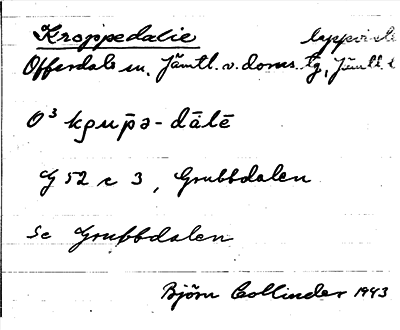 Kroppedalie
Offerdals sn. Jämtl. v. doms. tg, Jämtl. l
O³ kgru̅pə-dālē
G 52 c 3, Grubbdalen
Se Grubbdalen
Björn Collinder 1943